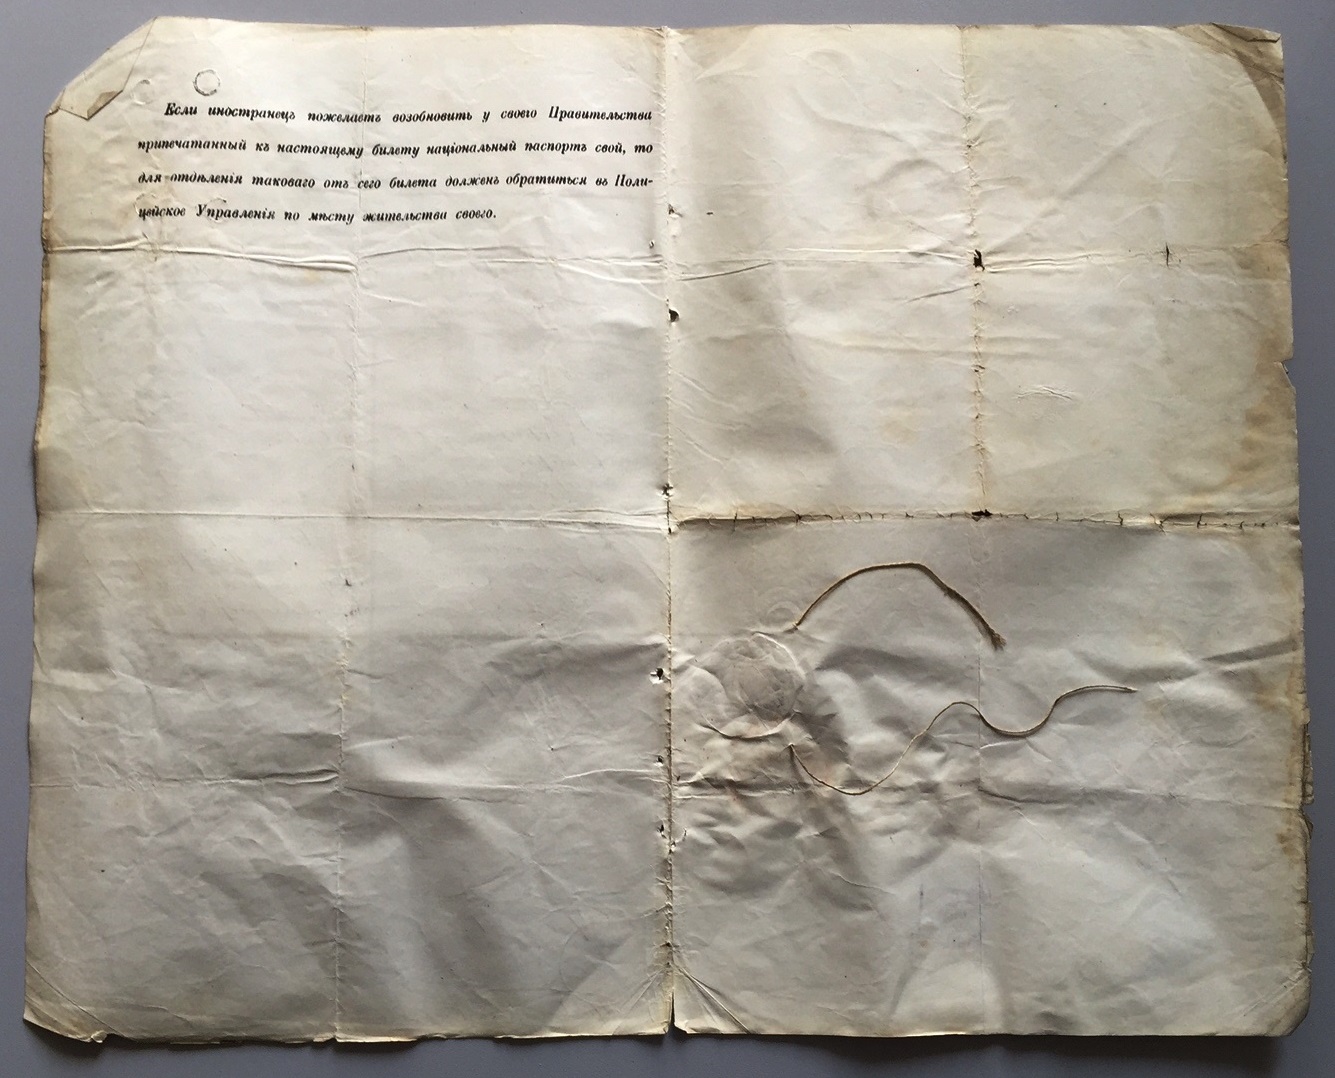 Если иностранецъ пожелаетъ возобновить у своего Правительства
припечатанный къ настоящему билету національный паспортъ свой, то
для отдѣленія таковаго отъ сего билета долженъ обратиться въ Поли-
цейское Управленія по мѣсту жительства своего.